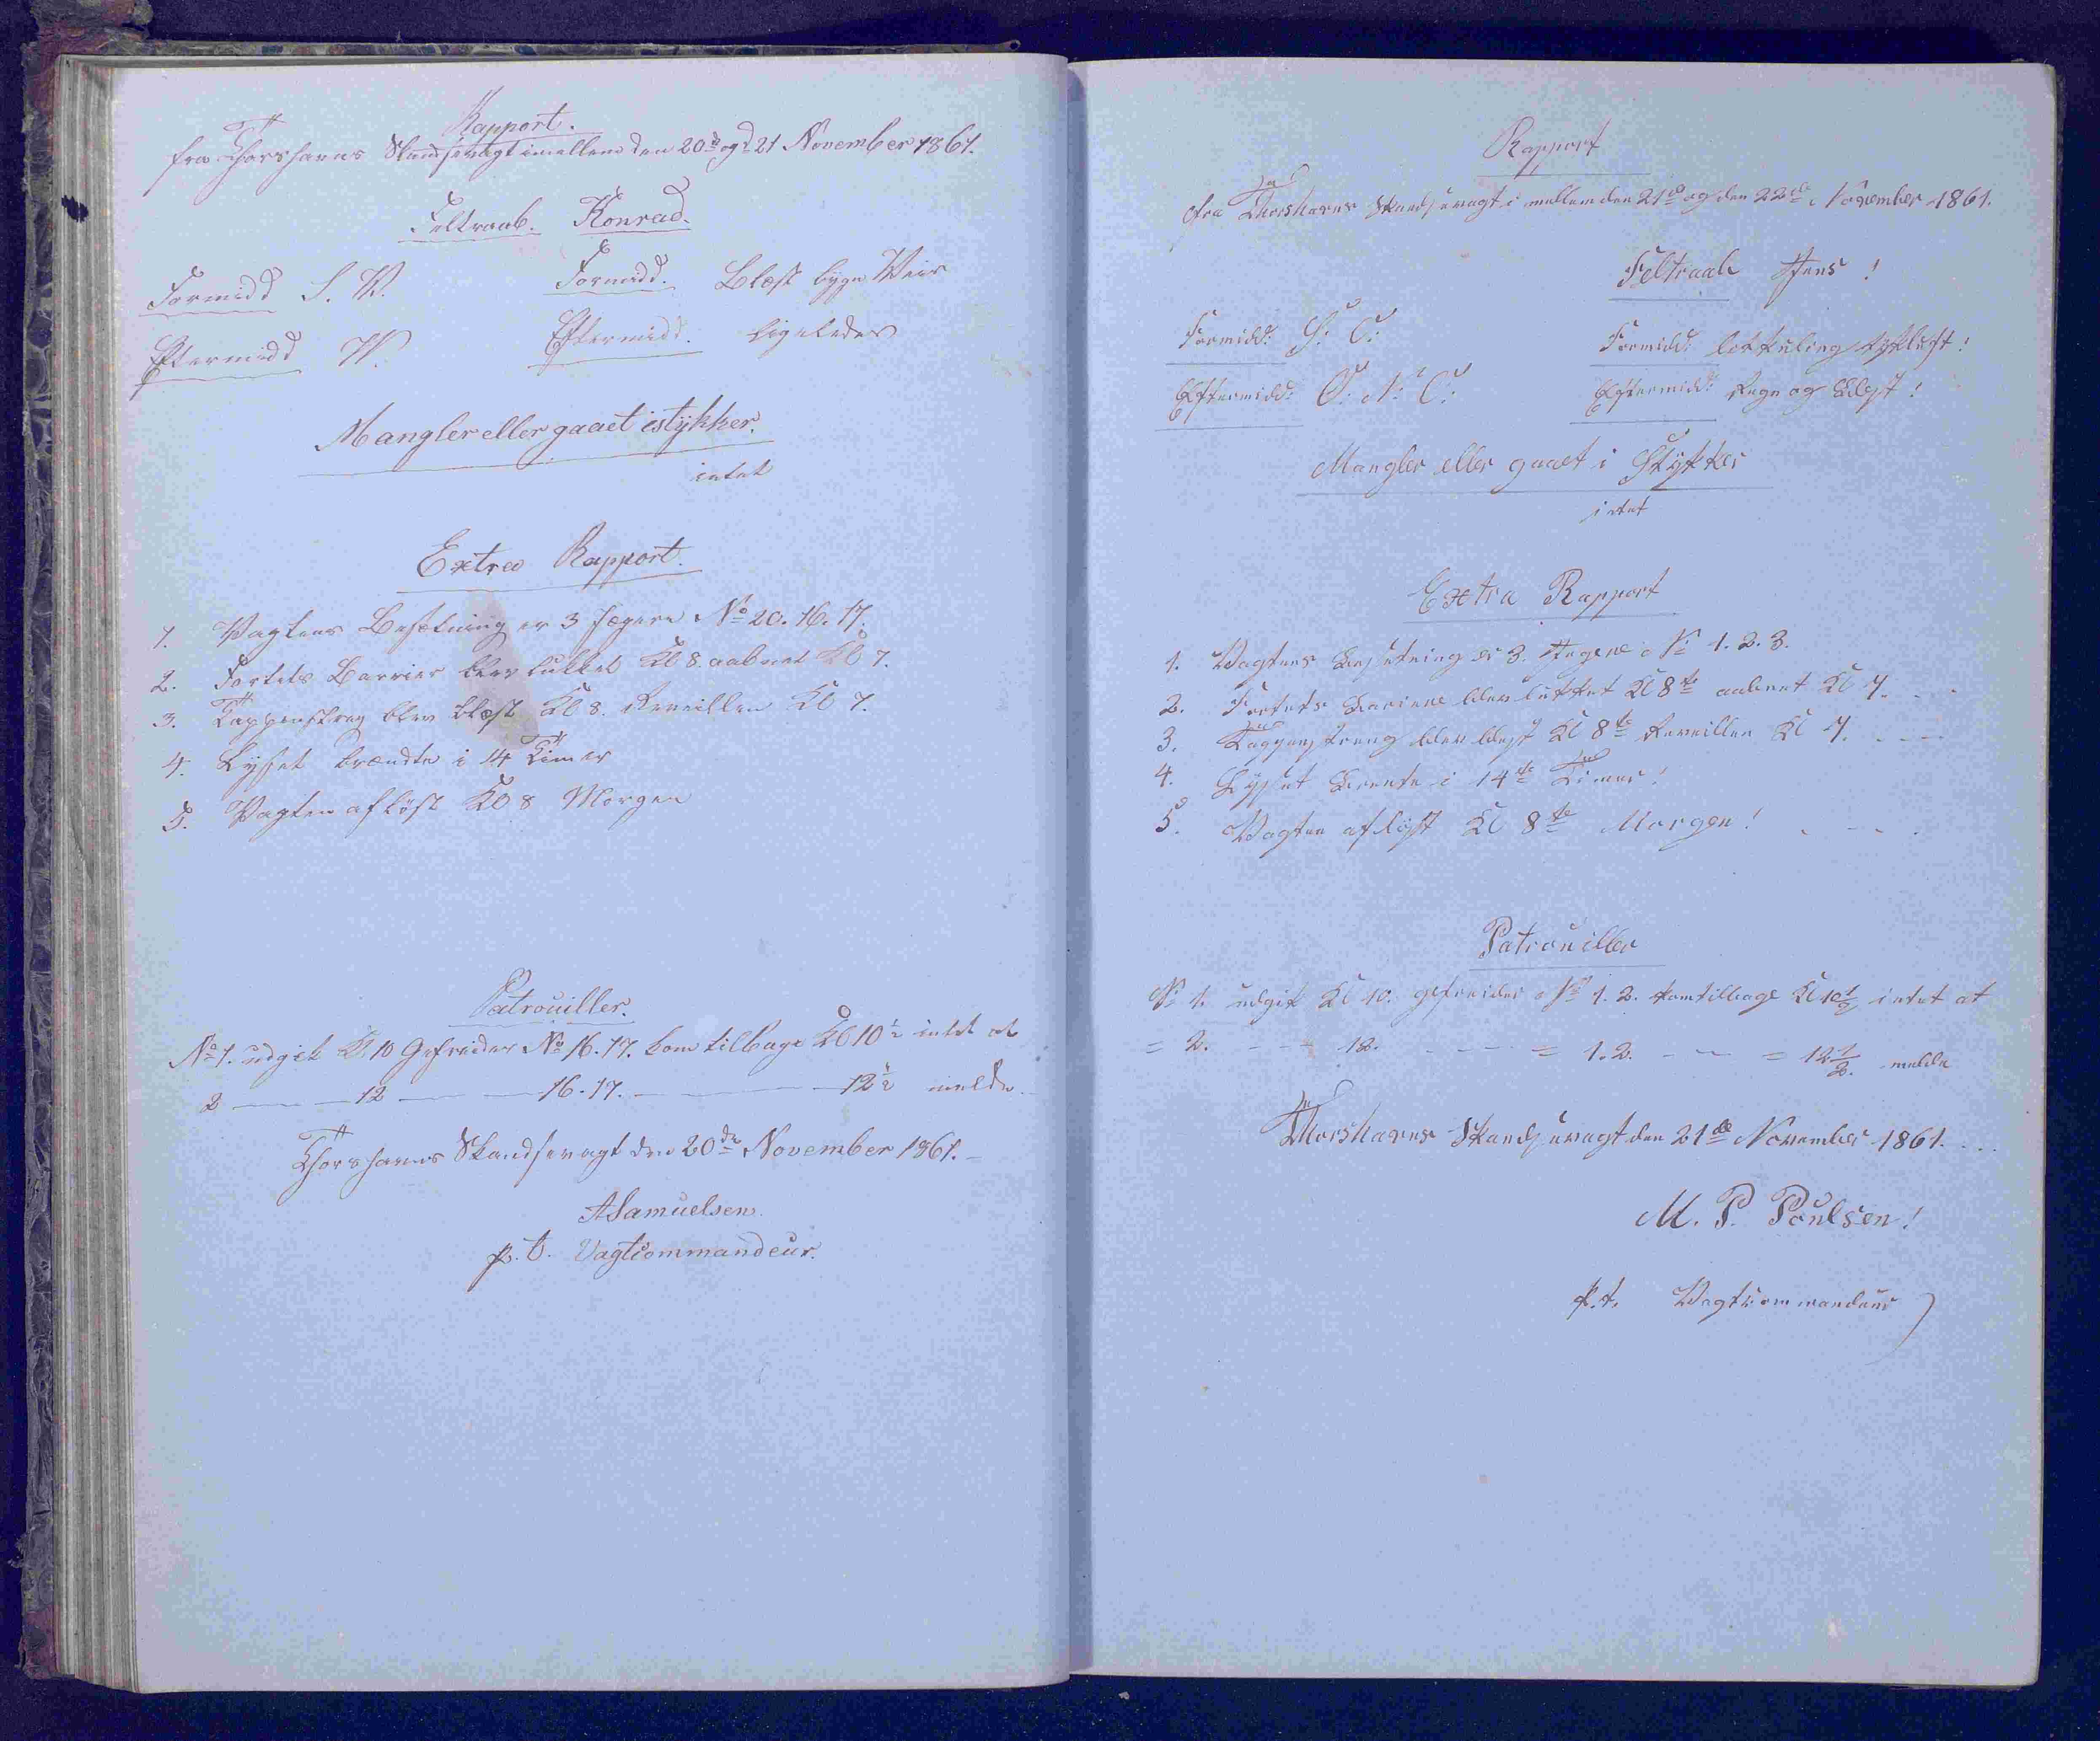 Rapport.
fra Thorshavns Skandsevagt imellem den 20de og d 21 November 1861.
Feltraab. Konrad.
Formidd S. V. Formidd. Blæst byge Veir
Eftermidd V. Eftermidd. ligeledes
Mangler eller gaaet istykker.
intet
Extra Rapport.
1. Vagtens Besætning er 3 Jægere No 20. 16. 17.
2. Fortets Barrier blev lukket Kl 8. aabnet Kl 7.
3. Tappenstreg blev blæst Kl 8. Reveillen Kl 7.
4. Lyset brændte i 14 Timer
5. Vagten afløst Kl 8 Morgen
Patrouiller.
No 1. udgik Kl 10 Gefreider No 16. 17. kom tilbage Kl 10½ intet at
2 — — 12 — — 16. 17. — — — 12½ melde.
Thorshavns Skandsevagt den 20de November 1861. –
ASamuelsen.
p. t. Vagtcommandeur.
Rapport
fra Thorshavns Skandsevagt i mellem den 21de og den 22de November 1861.
Feltraab Jens!
Formidd: S: O: Formidd: letkuling tykluft!
Eftermidd: O: N: O: Eftermidd: Regn og Blest!
Mangler eller gaaet i Stykker
intet
Extra Rapport
1. Vagtens Besetning er 3. Jegere: No 1. 2. 3.
2. Fortets Bariere blev lukket Kl 8te aabnet Kl 7. - -
3. Tappenstreng blev blest Kl 8te Reveillen Kl 7. - - -
4. Lyset Brente i 14de Timer!
5. Vagten afløst Kl 8te Morgen! - - - .
Patrouiller
No 1. udgik Kl 10. gefreider: No 1. 2. kom tilbage Kl 10½ intet at
= 2. - - - 12. - - - = 1. 2. - - - = 12½. melde
Thorshavns Skandsevagt den 21de November 1861. - - -
M. P. Poulsen!
p. t. Vagtcommandeur